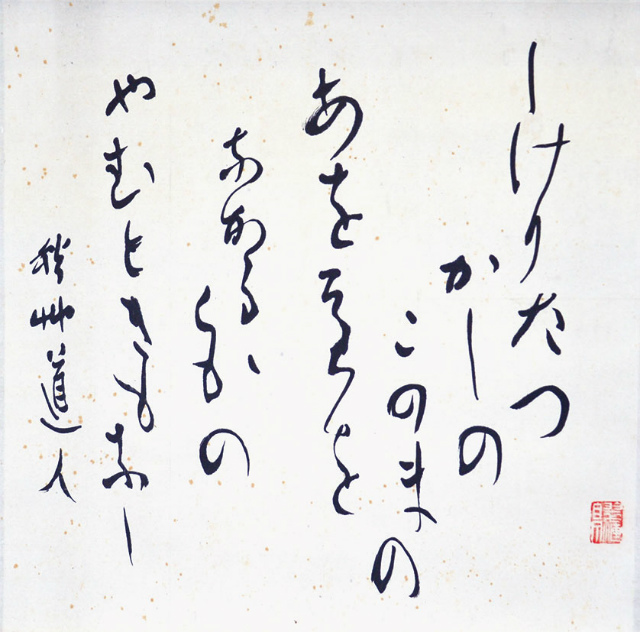 しけりたつ
かしの
このまの
あをそらを
なかるるくもの
やむときもなし
秋艸道人